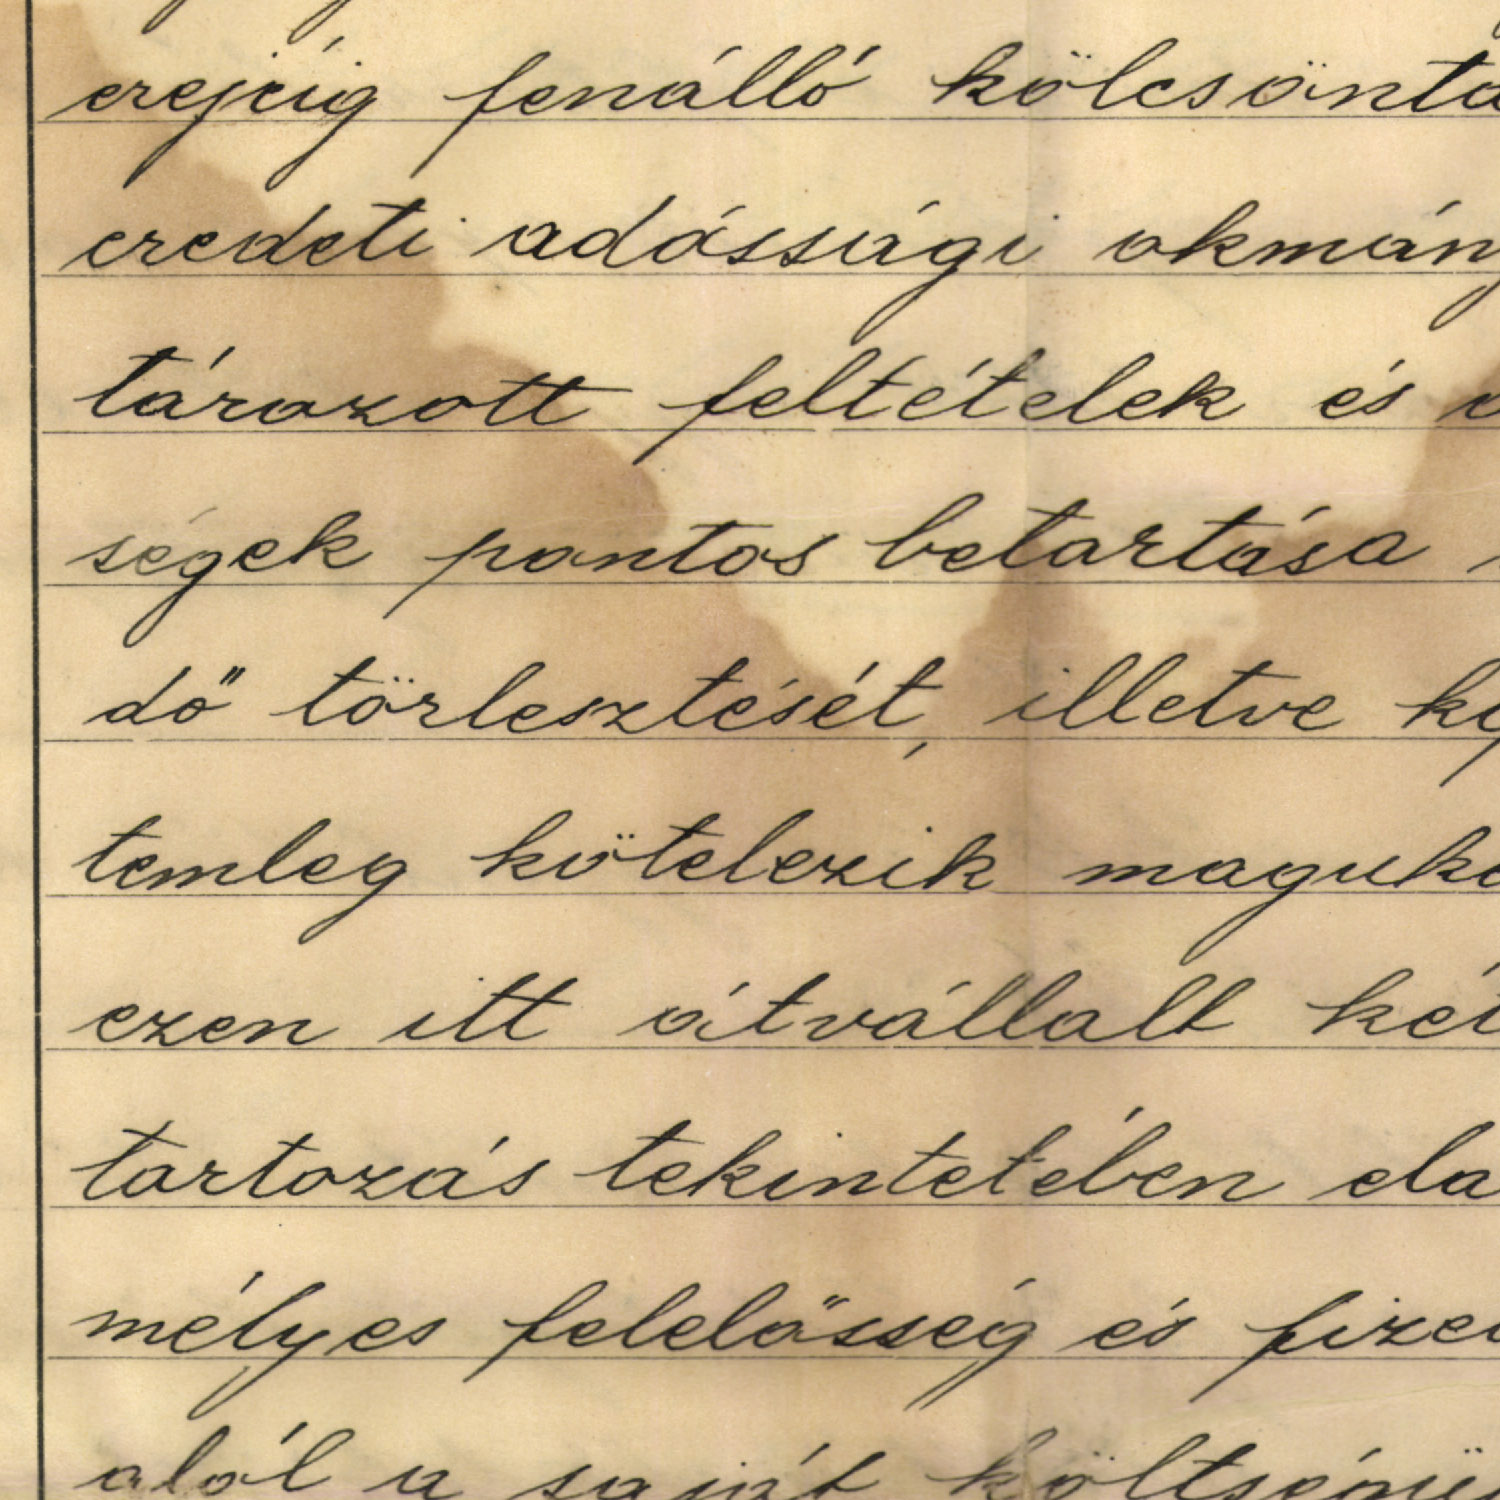 erejéig fenálló kölcsönta
eredeti adóssági okmány
tározott feltételek és
ségek pontos betartása
dő törlesztését, illetve
temleg kötelezik maguka
ezen itt átvállalt két
tartozás tekintetében ela
mélyes felelősség és fizet
alól a saját költségü